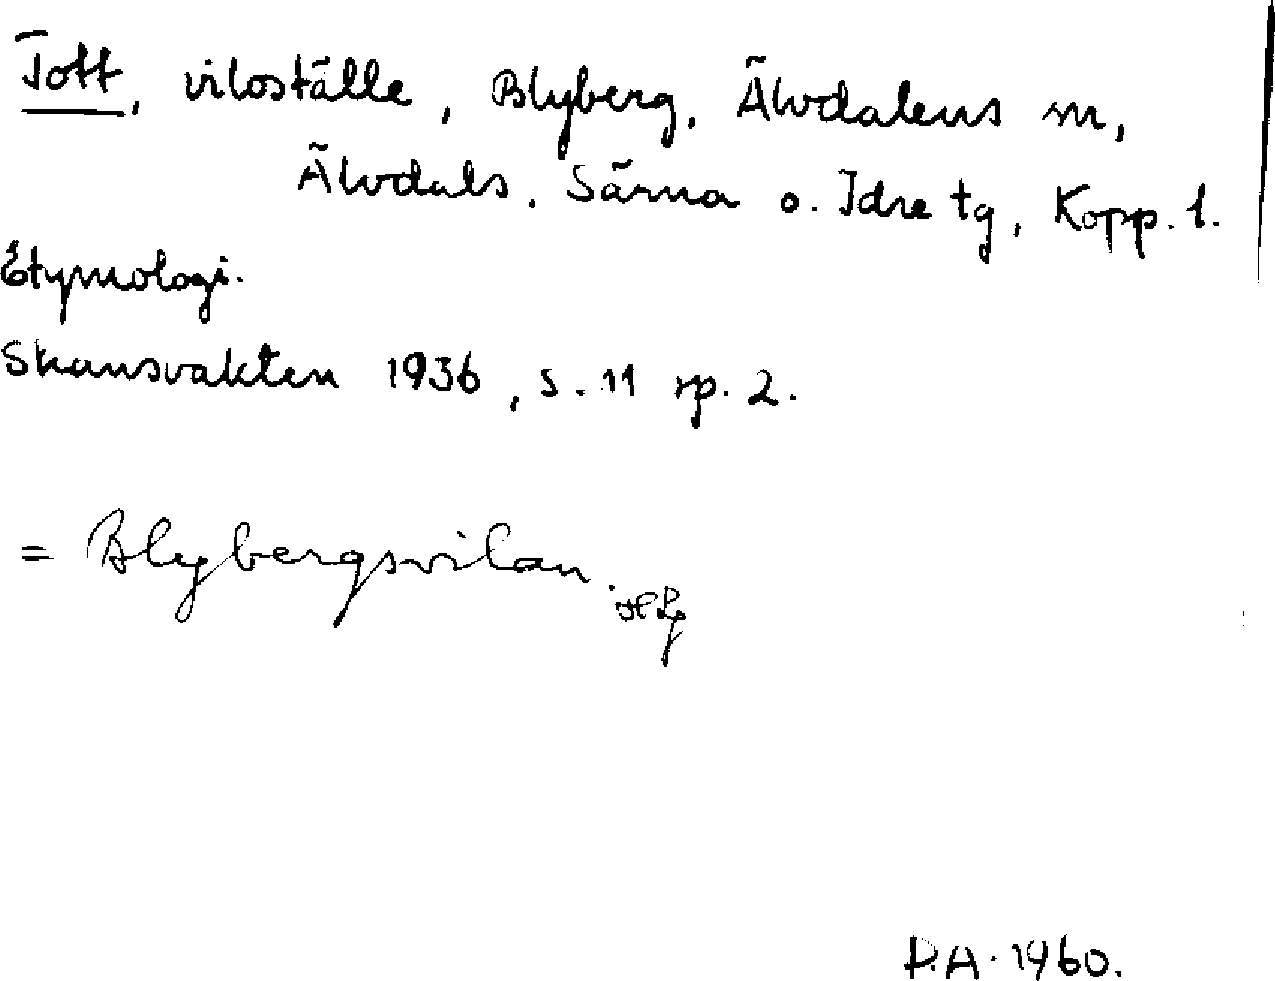 Tott, viloställe, Blyberg, Älvdalens sn,
Älvdals, Särna o. Idre tg, Kopp. l.
Etymologi.
Skansvakten 1936, s. 11 sp. 2.
= Blybergsvilan.
D.A. 1960.